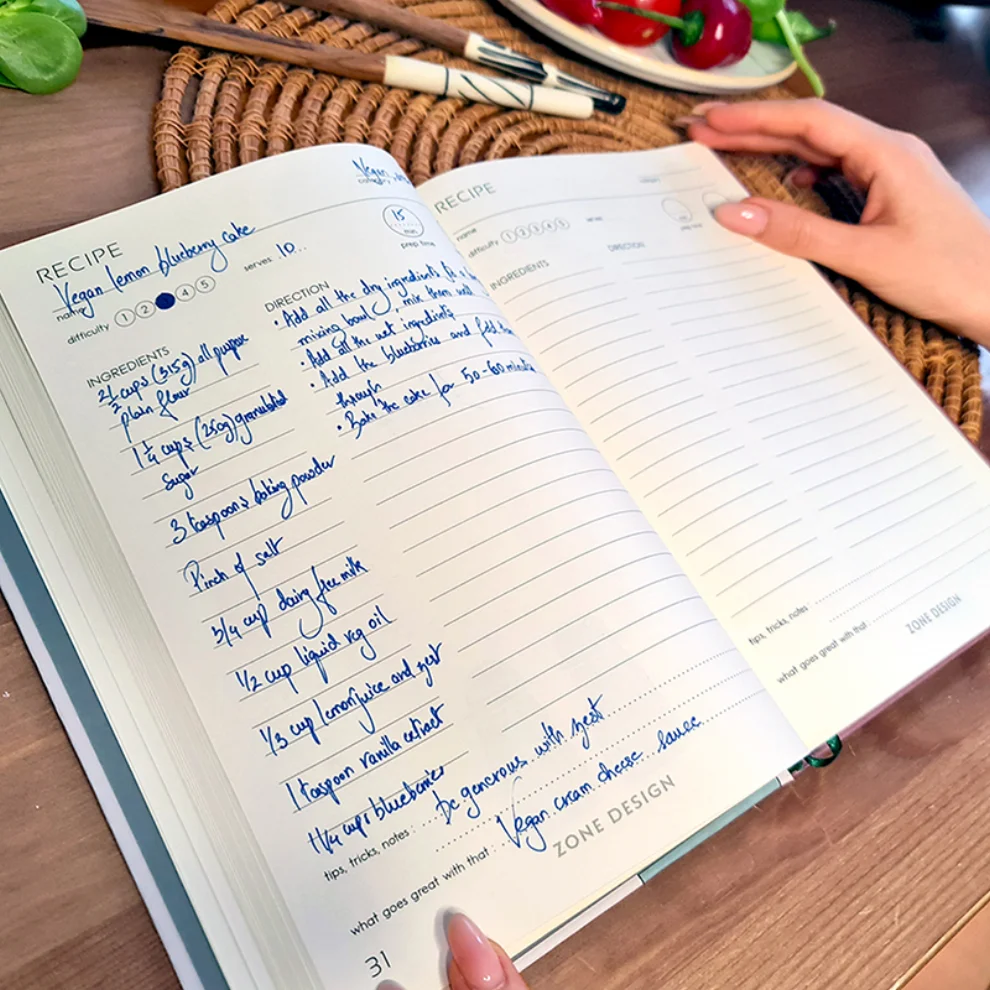 Vegan
category
RECIPE
Vegan lemon blueberry cake
name
difficulty 1 2 4 5
serves 10...
15
min.
prep time
INGREDIENTS
2 1/2 cups (315g) all purpose
plain flour
1 1/4 cups (250g) granulated
sugar
3 teaspoons baking powder
Pinch of salt
3/4 cup dairy free milk
1/2 cup liquid veg oil
1/3 cup lemon juice and zest
1 teaspoon vanilla extract
1 1/4 cups blueberries
DIRECTION
• Add all the dry ingredients
mixing bowl, mix them well
• Add all the wet ingredients
• Add the blueberries and fold
through
• Bake the cake for 50-60 minutes
tips, tricks, notes : be generous with zest
what goes great with that : Vegan cream cheese sauce
ZONE DESIGN
31
RECIPE
name
difficulty 1 2 3 4 5
prep time
INGREDIENTS
DIRECTION
tips, tricks, notes
what goes great with that :
ZONE DESIGN